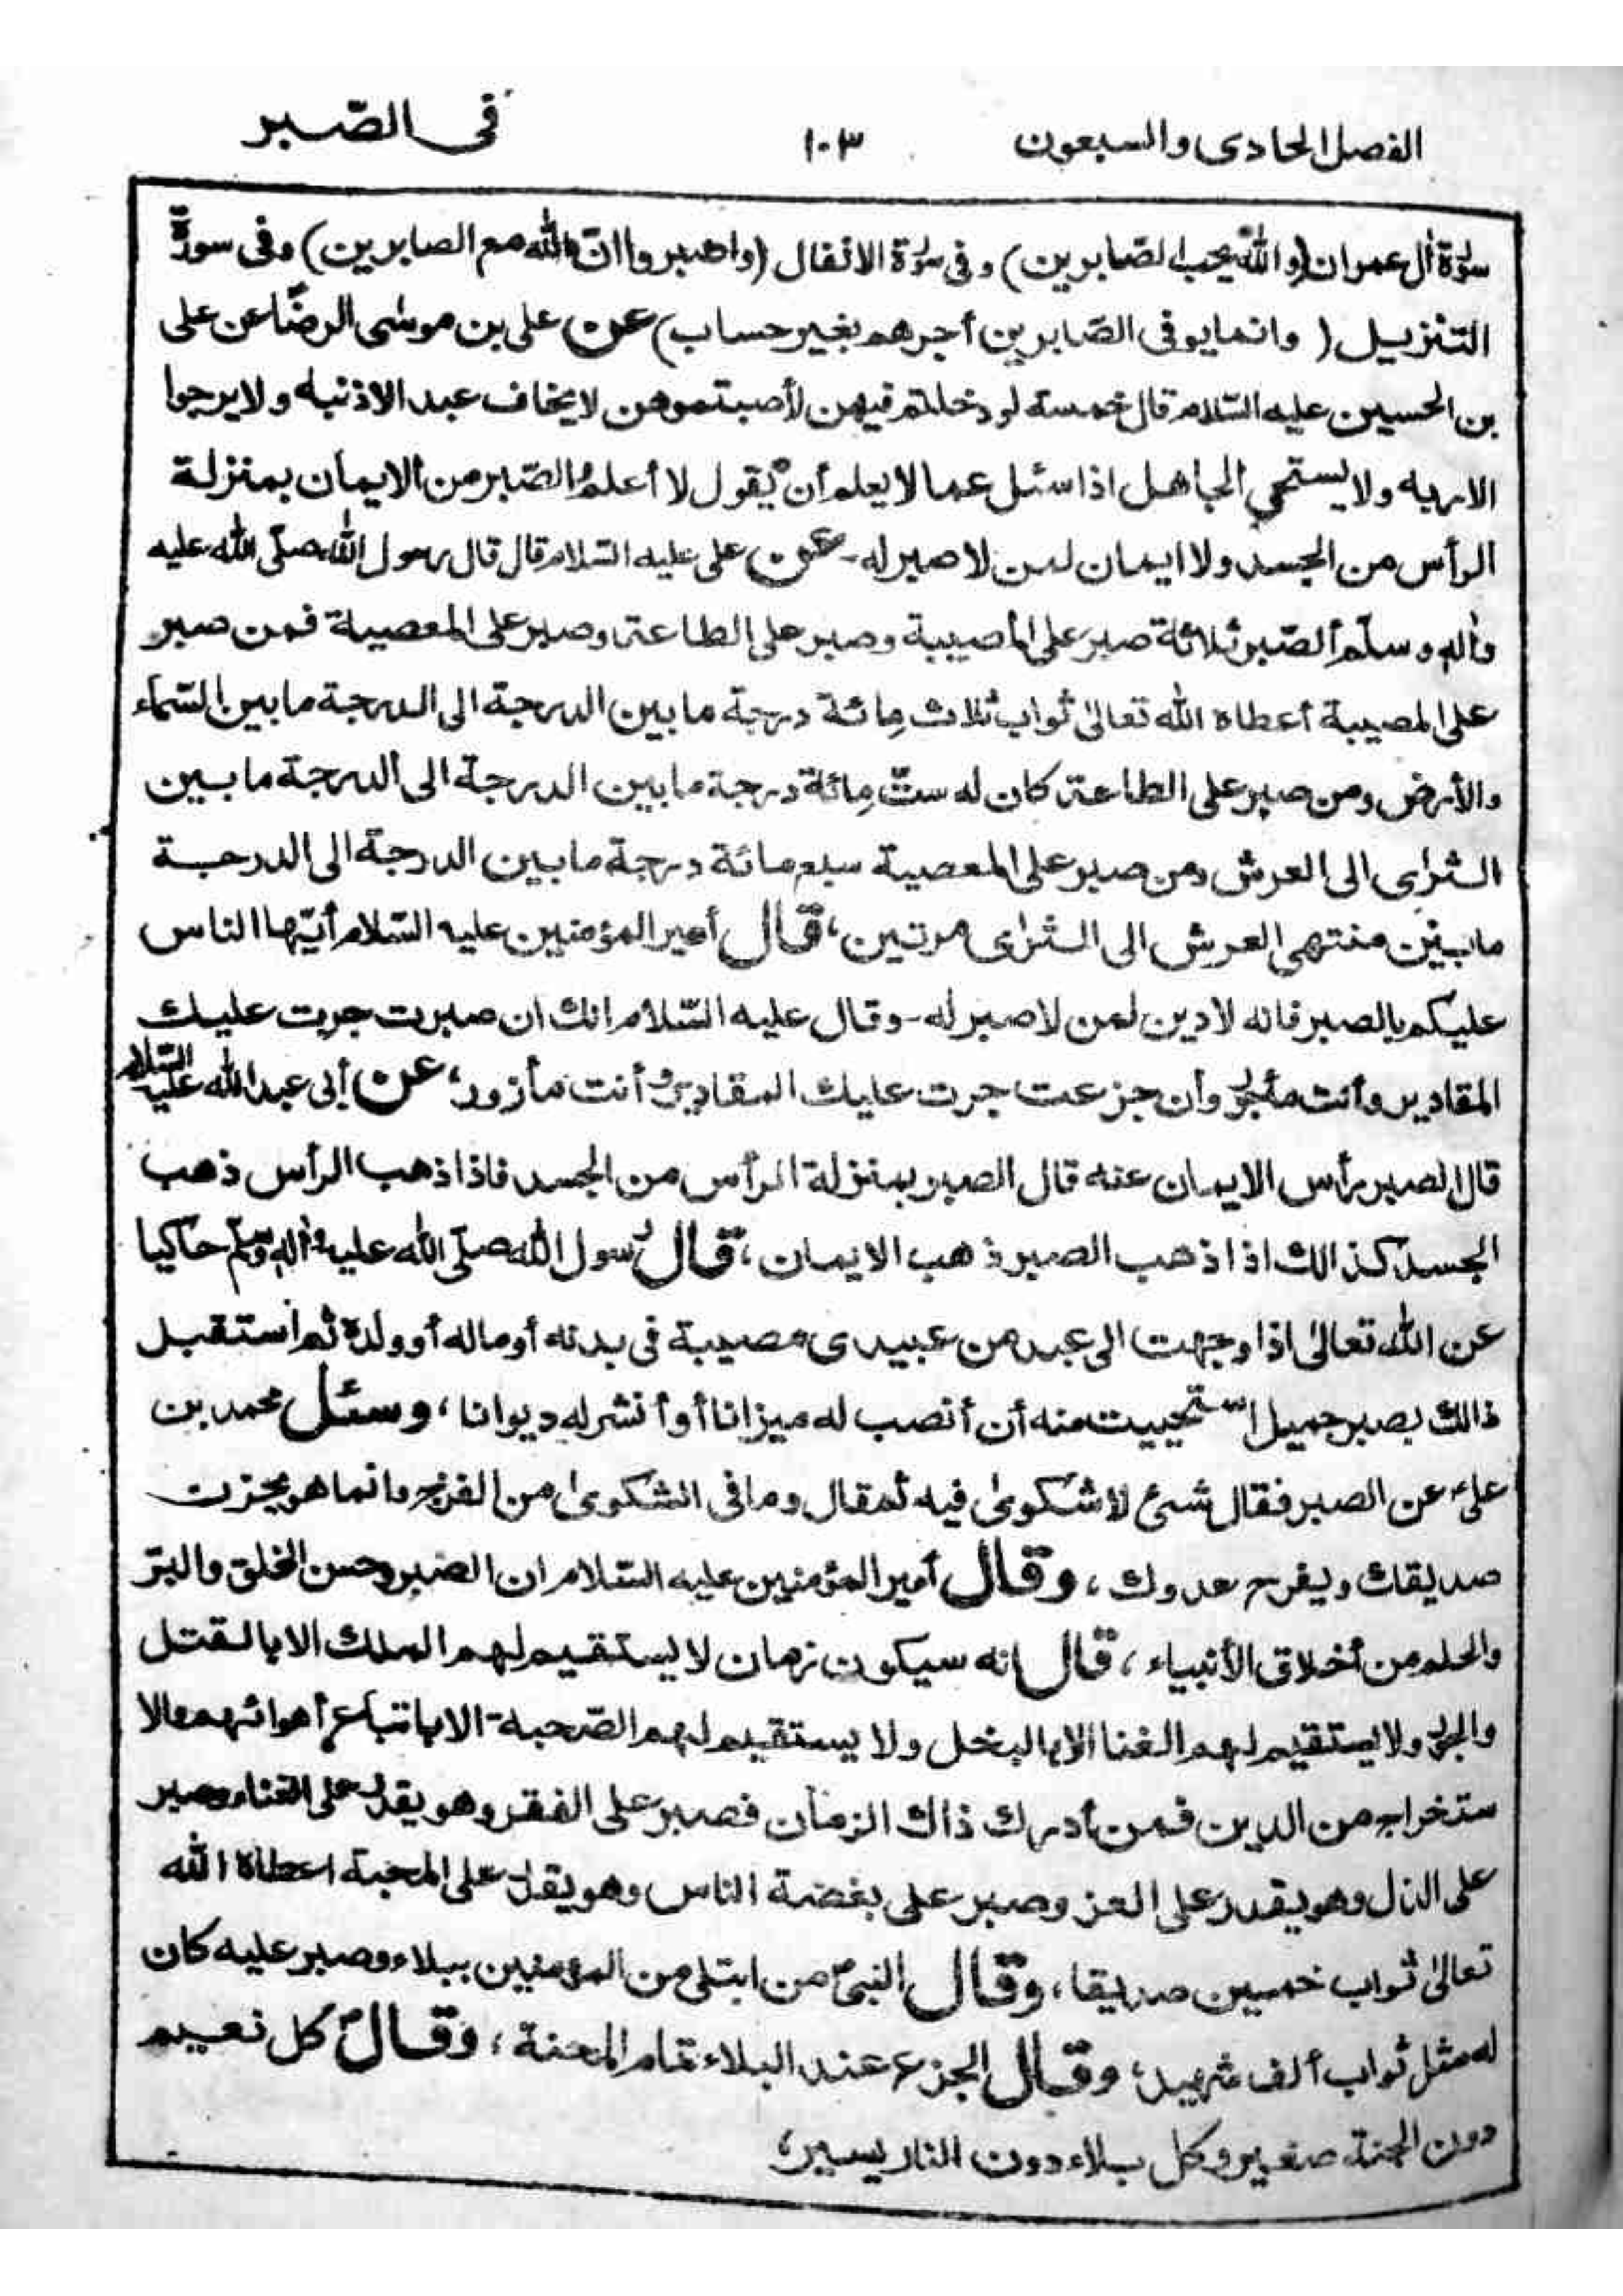 الفصل الحادى والسبعون ١٠٣ فى الصّبر
سورة اٰل عمران (والله يحب الصّابرين) وفى سورة الانفال (واصبروا انّ الله مع الصابرين) وفى سورة
التنزيل ( وانما يوفى الصّابرين أجرهم بغير حساب) عن على بن موسٰى الرضا عن على
بن الحسين عليه السّلام قال خمسة لو دخلتم فيهن لأصبتموهن لا يخاف عبد الا ذنبه ولا يرجوا
الا ربه ولا يستحي الجاهل اذا سئل عما لا يعلم أن يقول لا أعلم الصّبر من الايمان بمنزلة
الرأس من الجسد ولا ايمان لمن لا صبر له - عن على عليه السّلام قال قال رسول الله صلّى الله عليه
واٰله وسلّم ألصّبر ثلاثة صبر على المصيبة وصبر على الطاعة وصبر على المعصية فمن صبر
على المصيبة أعطاه الله تعالىٰ ثواب ثلاث مِائة درجة ما بين الدرجة الى الدرجة ما بين السّماء
والأرض ومن صبر على الطاعة كان له ستّ مِائة درجة ما بين الدرجة الى الدرجة ما بين
الثرٰى الى العرش ومن صبر على المعصية سبع مائة درجة ما بين الدرجة الى الدرجة
ما بين منتهى العرش الى الثرٰى مرتين، قال أمير المؤمنين عليه السّلام أيّها الناس
عليكم بالصبر فانه لا دين لمن لا صبر له - وقال عليه السّلام انك ان صبرت جرت عليك
المقادير وأنت مأجور وأن جزعت جرت عليك المقادير وأنت مأزور، عن أبى عبد الله عليه السّلام
قال الصبر رأس الايمان عنه قال الصبر بمنزلة الرأس من الجسد فاذا ذهب الرأس ذهب
الجسد كذالك اذا ذهب الصبر ذهب الايمان، قال رسول الله صلّى الله عليه واٰله وسلّم حاكيا
عن الله تعالىٰ اذا وجهت الى عبد من عبيدى مصيبة فى بدنه أو ماله أو ولده ثم استقبل
ذالك بصبر جميل استحييت منه أن أنصب له ميزانا أو أنشر له ديوانا، وسئل محمد بن
علىؑ عن الصبر فقال شئ لا شكوىٰ فيه ثم قال وما فى الشكوىٰ من الفرج وانما هو يحزن
صديقك ويفرح عدوك، وقال أمير المؤمنين عليه السّلام ان الصبر وحسن الخلق والبرّ
والحلم من أخلاق الأنبياء، قال انه سيكون زمان لا يستقيم لهم الملك الا بالقتل
والجور ولا يستقيم لهم الغنا الا بالبخل ولا يستقيم لهم الصّحبة الا باتباع أهوائهم والا
ستخراج من الدين فمن أدرك ذاك الزمان فصبر على الفقر وهو يقدر على الغناء وصبر
على الذل وهو يقدر على العز وصبر على بغضة الناس وهو يقدر على المحبة اعطاه الله
تعالىٰ ثواب خمسين صديقا، وقال النبىؐ من ابتلى من المؤمنين ببلاء وصبر عليه كان
له مثل ثواب ألف شهيد، وقال الجزع عند البلاء تمام المحنة، وقالؑ كل نعيم
دون الجنة صغير وكل بلاء دون النار يسير،